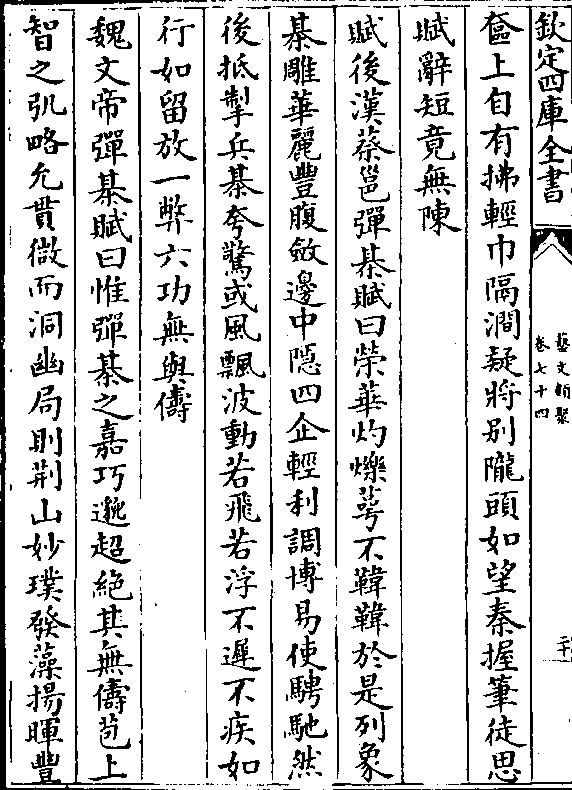 欽定四庫全書
藝文類聚
卷七十四
奩上自有拂輕巾隔澗疑將别隴頭如望秦握筆徒思
賦辭短竟無陳
賦後漢蔡邕彈棊賦曰榮華灼爍萼不韡韡於是列象
棊雕華麗豐腹斂邊中隱四企輕利調博易使騁馳然
後抵掣兵棊夸驚或風飄波動若飛若浮不遲不疾如
行如留放一弊六功無與儔
魏文帝彈棊賦曰惟彈棊之嘉巧邈超絶其無儔苞上
智之弘略允貫微而洞幽局則荆山妙璞發藻揚暉豐